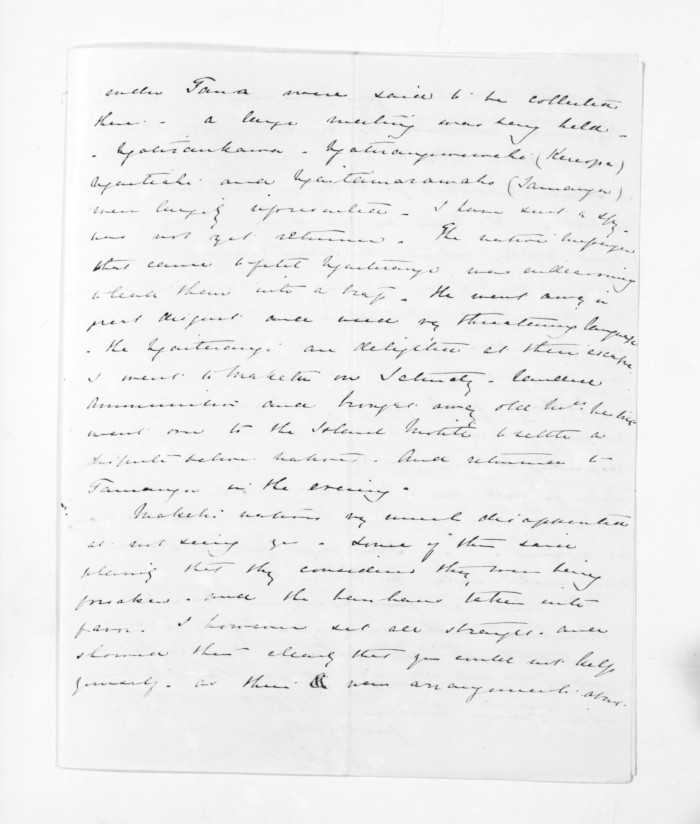 under Tana were said to be collected
there - a large meeting was being held -
- Ngatiraukawa - Ngatirangiwewehi (Kereopa)
and Ngaitamarawaho (Tauranga)
were largely represented - I have sent a spy -
has not yet returned - The native
that came to fetch Ngaiterangi was endeavouring
to lead them into a trap - He went away in
great disgust and used very threatening language
- the Ngaiterangi are delighted at their escape
I went to Maketu on Saturday - landed
ammunition and brought away old Mrs
went over to the Island Motiti to settle a
dispute between natives - and returned to
Tauranga in the evening -
Maketu natives very much disappointed
at not seeing you - Some of them said
plainly that they considered they were being
forsaken - and the Hauhaus taken into
favor - I however set all straight - and
showed them clearly that you could not help
yourself - as there new arrangements